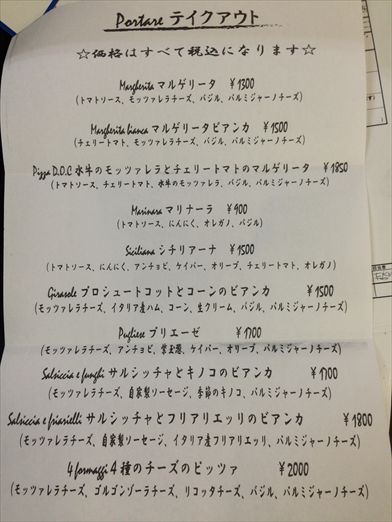 Portare テイクアウト
☆価格はすべて税込になります☆
Margherita マルゲリータ ¥1300
(トマトソース、モッツァレラチーズ、バジル、パルミジャーノチーズ)
Margherita bianca マルゲリータビアンカ ¥1500
(チェリートマト、モッツァレラチーズ、バジル、パルミジャーノチーズ)
Pizza D.O.C 水牛のモッツァレラとチェリートマトのマルゲリータ ¥1850
(トマトソース、チェリートマト、水牛のモッツァレラ、バジル、パルミジャーノチーズ)
Marinara マリナーラ ¥900
(トマトソース、にんにく、オレガノ、バジル)
Siciliana シチリアーナ ¥1500
(トマトソース、にんにく、アンチョビ、ケイパー、オリーブ、チェリートマト、オレガノ)
Girasole プロシュートコットとコーンのビアンカ ¥1500
(モッツァレラチーズ、イタリア産ハム、コーン、生クリーム、バジル、パルミジャーノチーズ)
Pugliese プリエーゼ ¥1700
(モッツァレラチーズ、アンチョビ、紫玉葱、ケイパー、オリーブ、パルミジャーノチーズ)
Salsiccia e funghi サルシッチャとキノコのビアンカ ¥1700
(モッツァレラチーズ、自家製ソーセージ、季節のキノコ、パルミジャーノチーズ)
Salsiccia e friarielli サルシッチャとフリアリエッリのビアンカ ¥1800
(モッツァレラチーズ、自家製ソーセージ、イタリア産フリアリエッリ、パルミジャーノチーズ)
4 formaggi 4種のチーズのピッツァ ¥2000
(モッツァレラチーズ、ゴルゴンゾーラチーズ、リコッタチーズ、バジル、パルミジャーノチーズ)